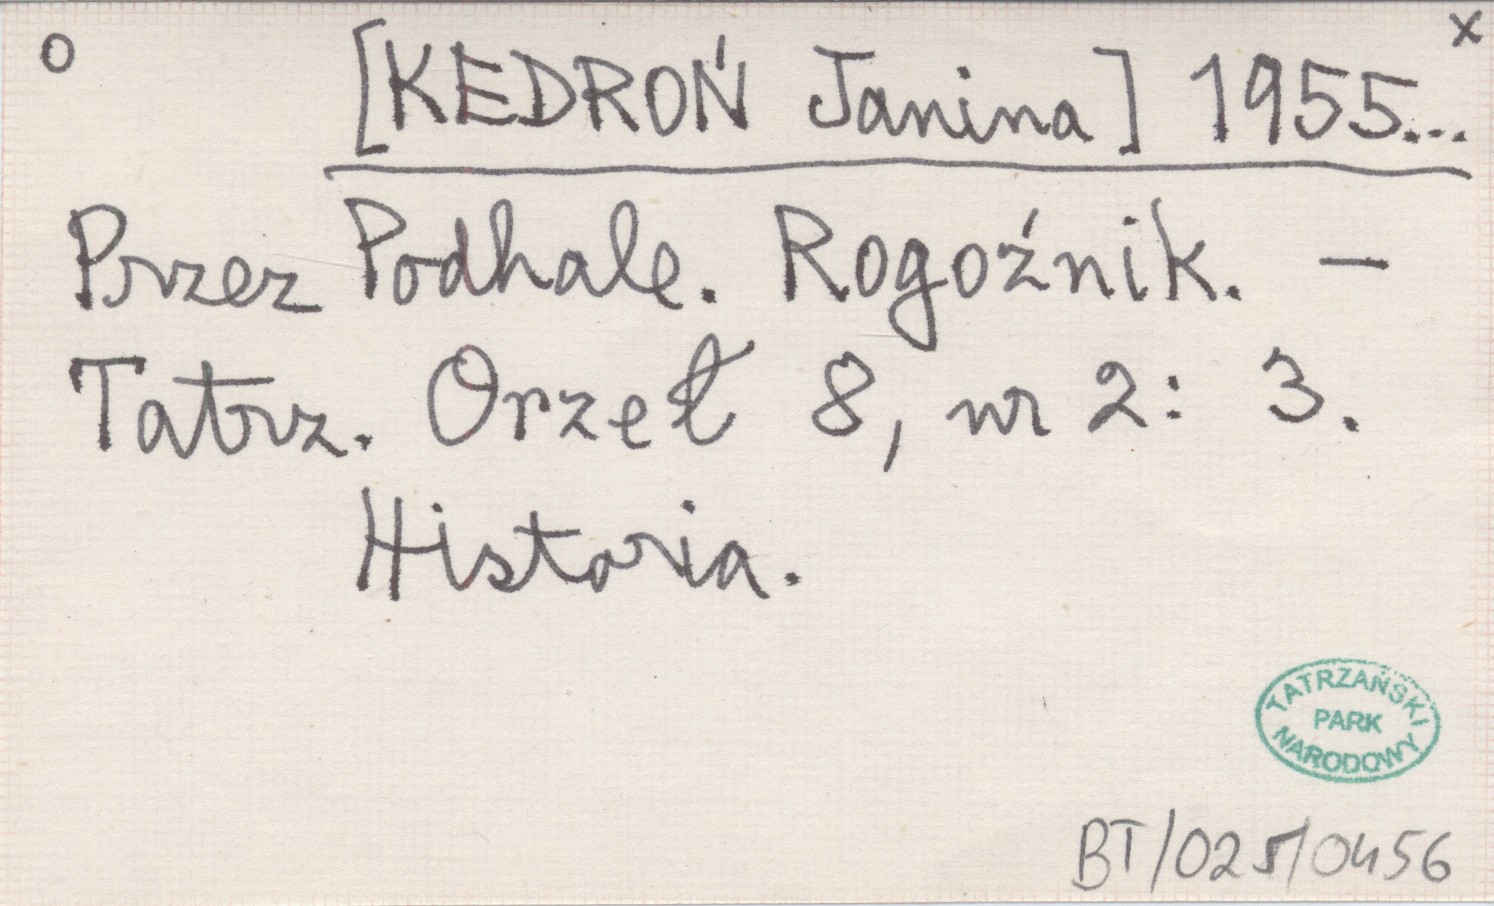 o [KEDROŃ Janina] 1955... x
Przez Podhale. Rogoźnik. –
Tatrz. Orzeł 8, nr 2: 3.
Historia.
TATRZAŃSKI
PARK
NARODOWY
BT/025/0456